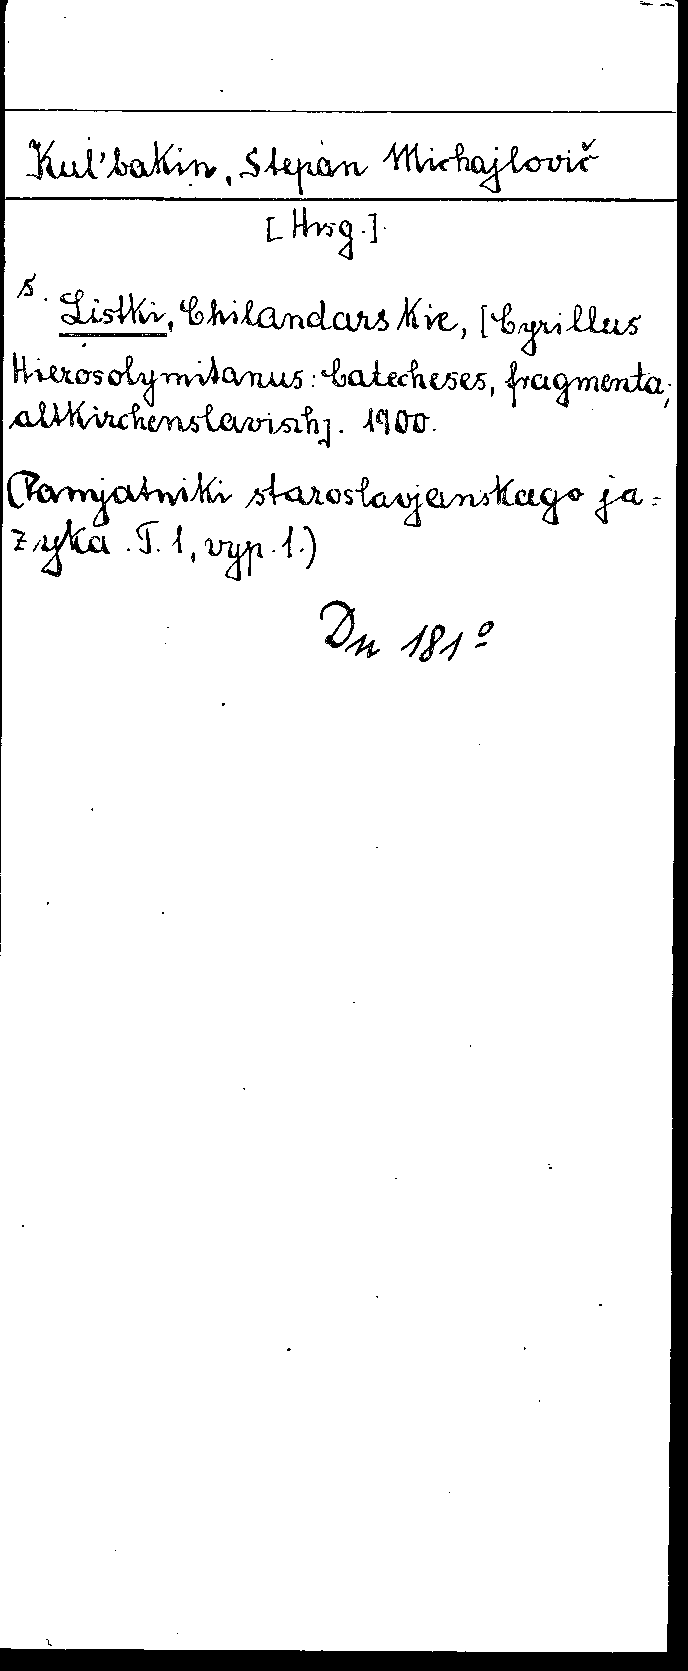 Kul'bakin, Stepan Michajlovič
[Hrsg.]
s. Listki, Chilandarskie, [Cyrillus
Hierosolymitanus: Catecheses, fragmenta,
altkirchenslavisch]. 1900.
(Pamjatniki staroslavjanskago ja=
zyka. T. 1, vyp. 1.)
Du 181º